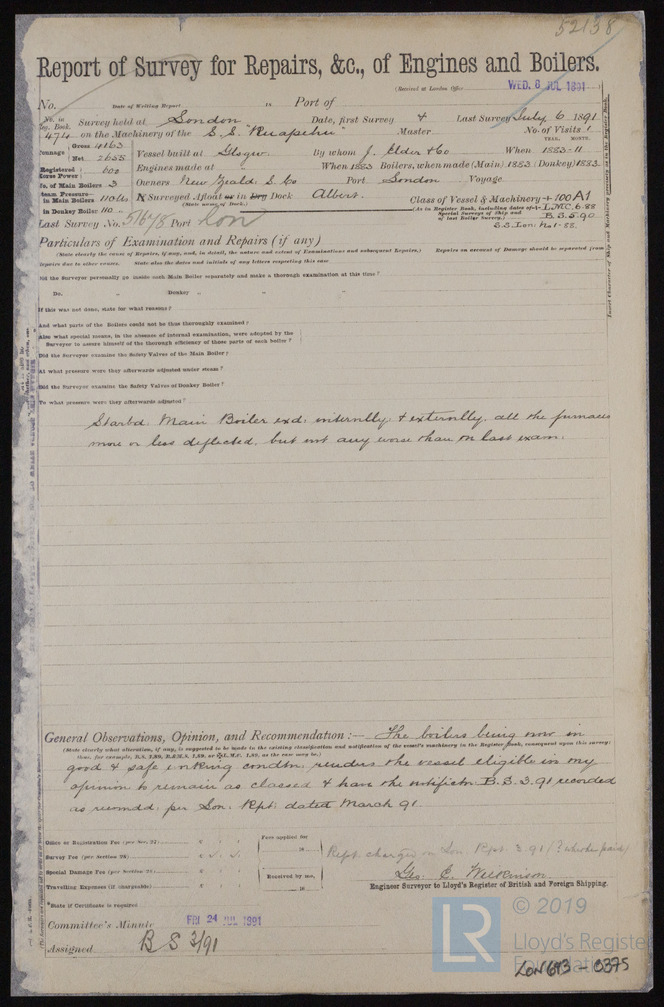 52138
Report of Survey for Repairs, &c., of Engines and Boilers.
(Received at London Office WED. 8 JUL 1891
No. Date of Writing Report 18 Port of
No. in Reg. Book. Survey held at London Date, first Survey & Last Survey July 6 1891
474 on the Machinery of the S.S. "Ruapehu" Master No. of Visits 1
YEAR. MONTH.
Tonnage Gross 4163 Net 2655 Vessel built at Glsgw. By whom J. Elder & Co When 1883-11
Registered Horse Power 600 Engines made at " When 1883 Boilers, when made (Main) 1883 (Donkey) 1883
No. of Main Boilers 3 Owners New Zeald. S. Co Port London Voyage
Steam Pressure in Main Boilers 110 lbs Surveyed Afloat or in Dry Dock Albert. Class of Vessel & Machinery 100 A1
(State name of Dock.)
in Donkey Boiler 110 " (As in Register Book, including dates of Special Surveys of Ship and of last Boiler Survey.) L.M.C. 6.88
B.S. 5.90
Last Survey No. 51678 Port Lon S.S. Lon: No 1-88
Particulars of Examination and Repairs (if any)
(State clearly the cause of Repairs, if any, and, in detail, the nature and extent of Examinations and subsequent Repairs.) Repairs on account of Damage should be separated from
repairs due to other causes. State also the dates and initials of any letters respecting this case.
Did the Surveyor personally go inside each Main Boiler separately and make a thorough examination at this time?
Do. " Donkey " " "
If this was not done, state for what reasons?
And what parts of the Boilers could not be thus thoroughly examined?
Also what special means, in the absence of internal examination, were adopted by the
Surveyor to assure himself of the thorough efficiency of those parts of each boiler?
Did the Surveyor examine the Safety Valves of the Main Boiler?
At what pressure were they afterwards adjusted under steam?
Did the Surveyor examine the Safety Valves of Donkey Boiler?
To what pressure were they afterwards adjusted?
Starbd: Main Boiler exd: internlly: & externlly, all the furnaces
more or less deflected, but not any worse than on last exam:
General Observations, Opinion, and Recommendation:— The boilers being now in
(State clearly what alteration, if any, is suggested to be made in the existing classification and notification of the vessel's machinery in the Register Book, consequent upon this survey;
good & safe working condtn: renders the vessel eligible in my
opinion to remain as classed & have the notificatn B.S. 3.91 recorded
as recomdd: per Lon. Rpt: dated March 91
Office or Registration Fee (per Sec. 27) £ : : Fees applied for
18
Survey Fee (per Section 28) £ : : Rept. charged on Lon. Rept. 3.91 (? whole paid)
Special Damage Fee (per Section 28) £ : : Received by me,
Geo. E. Wilkinson.
Travelling Expenses (if chargeable) £ : : 18 Engineer Surveyor to Lloyd's Register of British and Foreign Shipping.
*State if Certificate is required
Committee's Minute FRI 24 JUL 1891
Assigned BS 3/91
LR © 2019
Lloyd's Register
Foundation
LON 693 - 0375
Insert Character of Ship and Machinery precisely as in the Register Book.